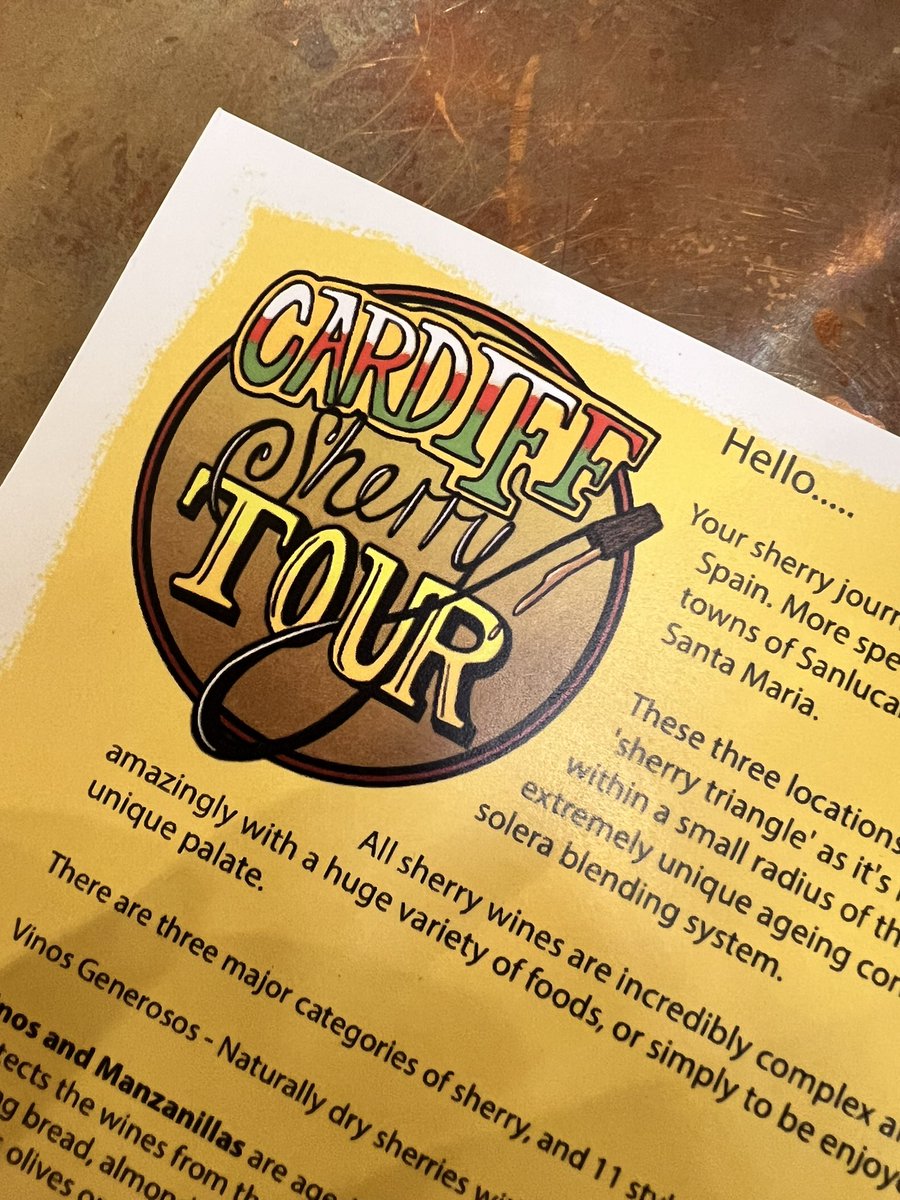 CARDIFF
Sherry
TOUR
Hello.....
Your sherry
Spain. More
towns of
Santa Maria.
These three locations
'sherry triangle' as it's
within a small radius of
extremely unique ageing
solera blending system.
All sherry wines are incredibly complex
amazingly with a huge variety of foods, or simply to be
unique palate.
There are three major categories of sherry, and 11
Vinos Generosos - Naturally dry sherries
and Manzanillas are
the wines from
bread,
olives